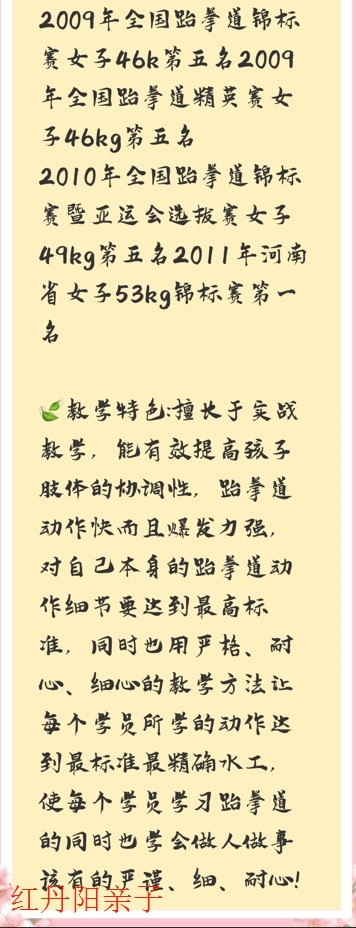 2009年全国跆拳道锦标
赛女子46k第五名2009
年全国跆拳道精英赛女
子46kg第五名
2010年全国跆拳道锦标
赛暨亚运会选拔赛女子
49kg第五名2011年河南
省女子53kg锦标赛第一
名
教学特色:擅长于实战
教学，能有效提高孩子
肢体的协调性，跆拳道
动作快而且爆发力强，
对自己本身的跆拳道动
作细节要达到最高标
准，同时也用严格、耐
心、细心的教学方法让
每个学员所学的动作达
到最标准最精确水工，
使每个学员学习跆拳道
的同时也学会做人做事
该有的严谨、细、耐心!
红丹阳亲子